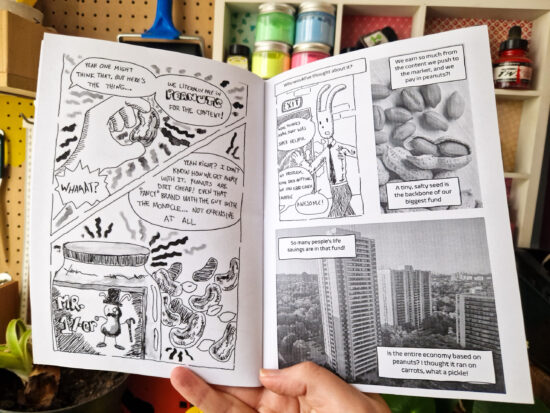 YEAH ONE MIGHT
THINK THAT, BUT HERE'S
THE THING...
WE LITERALLY PAY IN
PEANUTS
FOR THE CONTENT!
WHAAAT?
YEAH RIGHT? I DON'T
KNOW HOW WE GET AWAY
WITH IT. PEANUTS ARE
DIRT CHEAP! EVEN THAT
"FANCY" BRAND WITH THE GUY WITH
THE MONOCLE... NOT EXPENSIVE
AT ALL
MR.
Who would've thought about it?
EXIT
AWESOME!
We earn so much from
the content we push to
the market, and we
pay in peanuts?!
A tiny, salty seed is
the backbone of our
biggest fund
So many people's life
savings are in that fund!
Is the entire economy based on
peanuts? I thought it ran on
carrots, what a pickle!